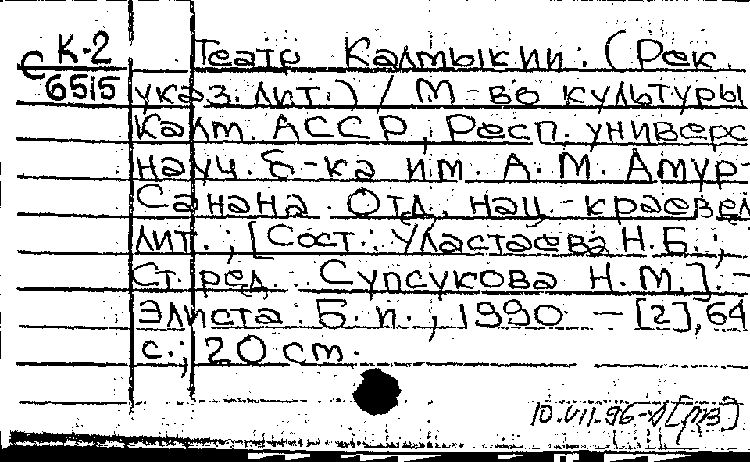 С К-2 Театр Калмыкии: (Рек.
6515 указ. лит.) / М-во культуры
Калм. АССР, Респ. универс
науч. б-ка им. А. М. Амур-
Санана. Отд. нац.-краевед
лит.; [Сост.: Уластаева Н.Б.;
Ст. ред. Супсукова Н.М.]. -
Элиста: Б. и., 1990 - [2], 64
с.; 20 cm.
10.VII.96-